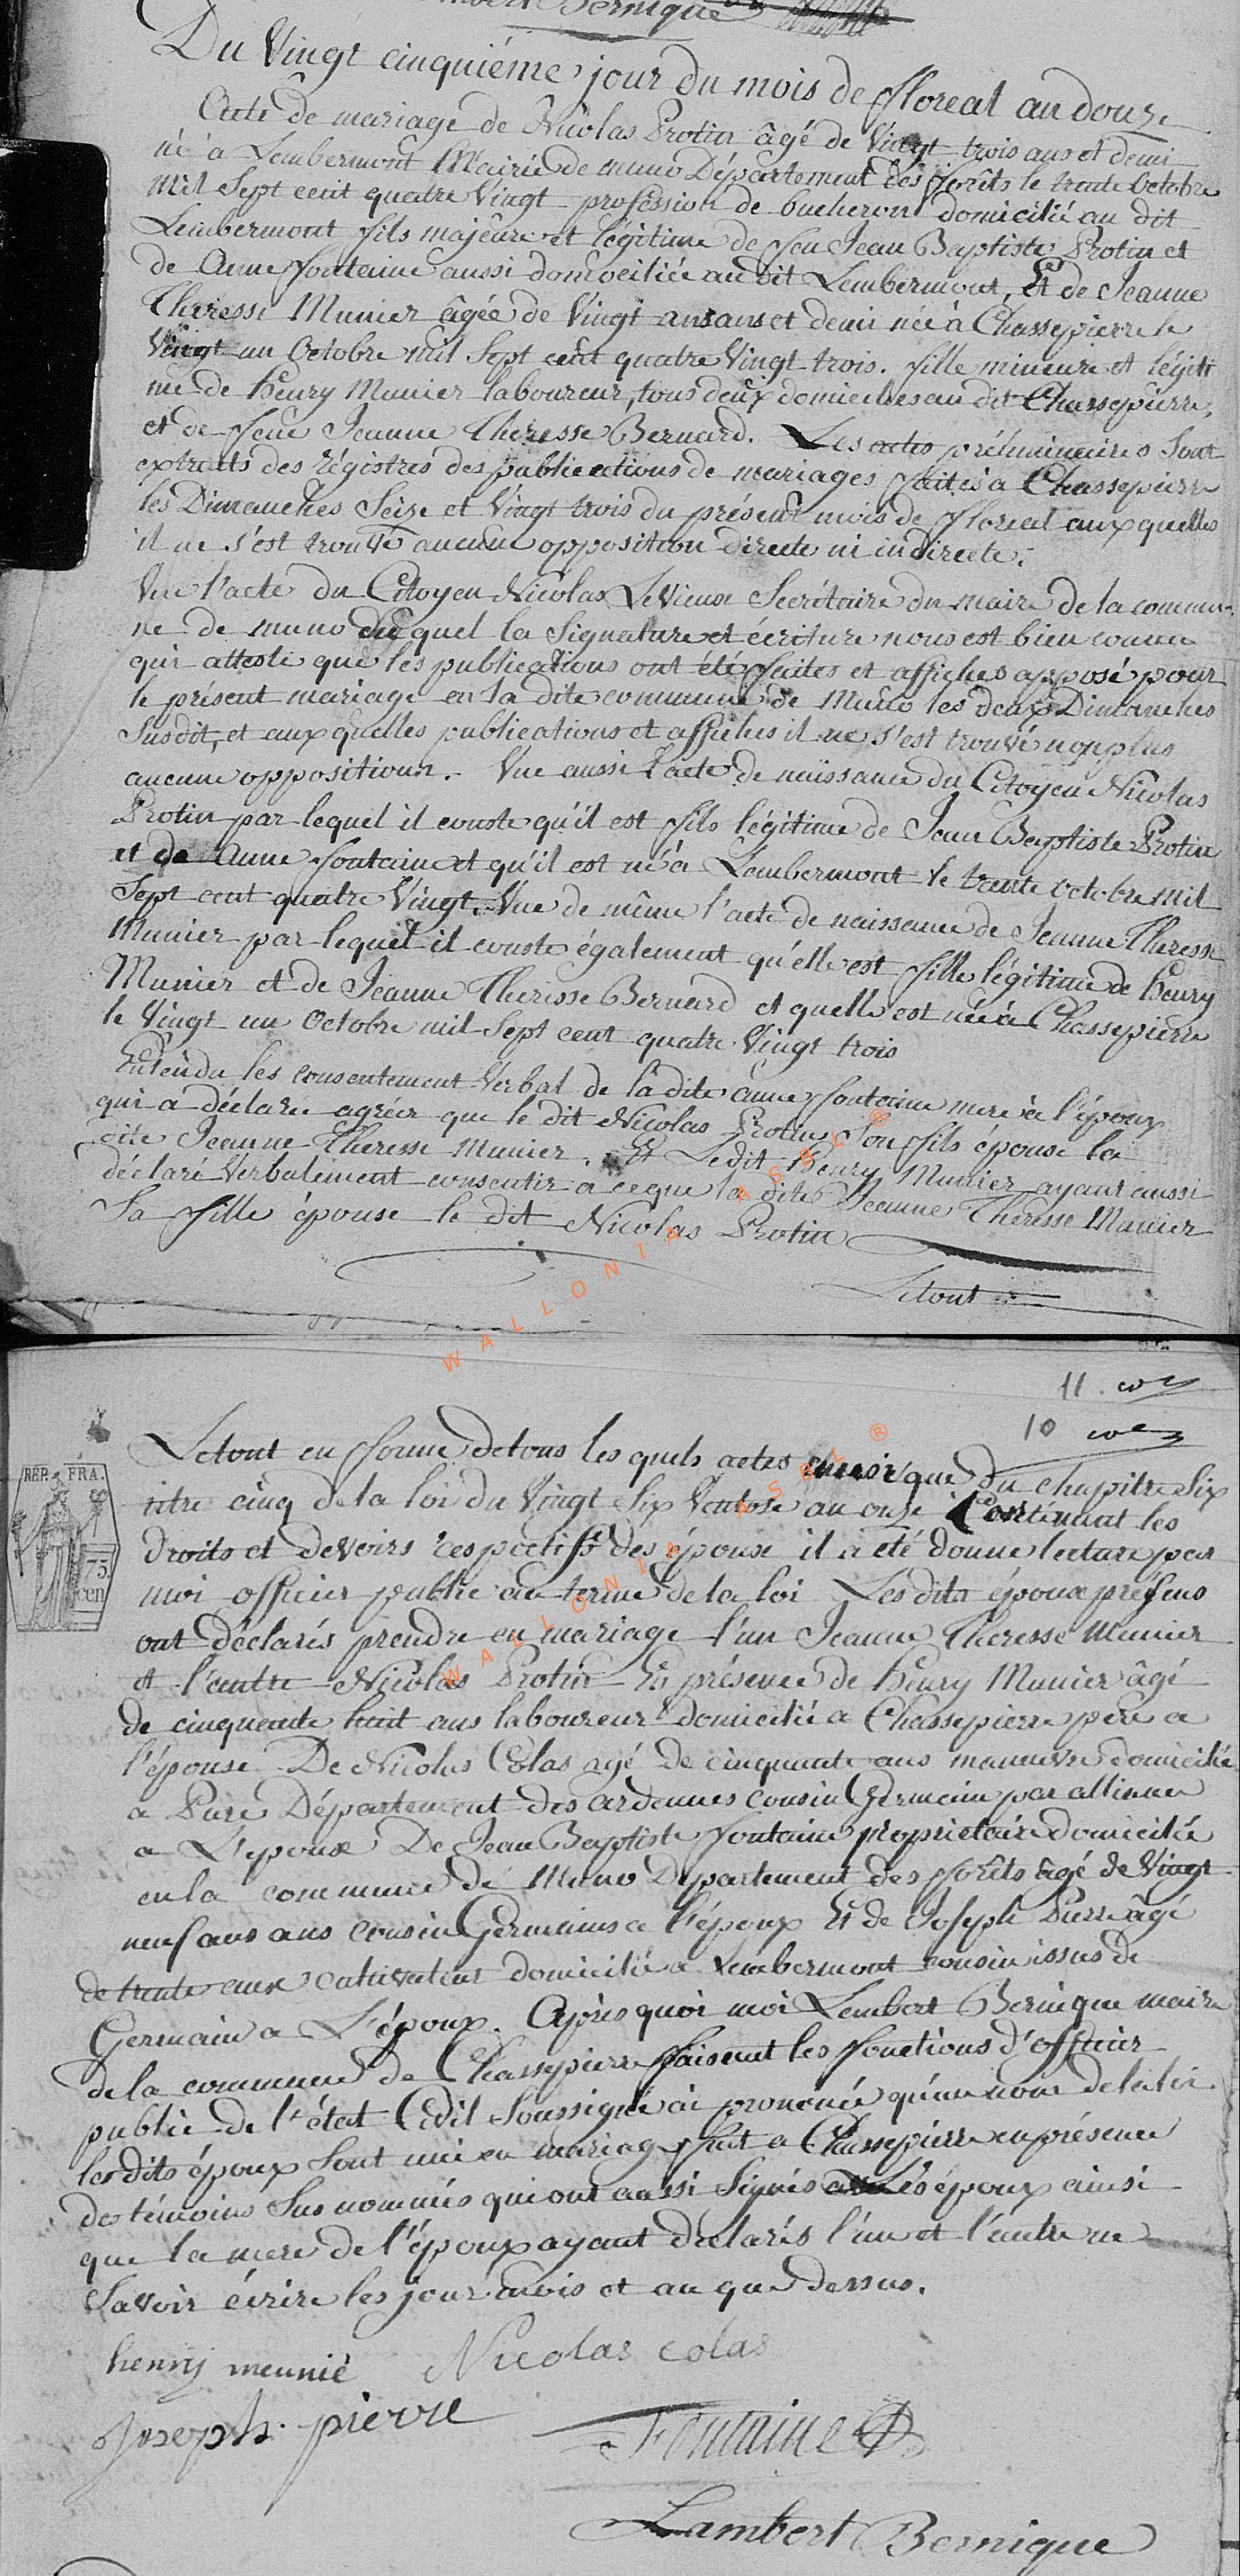 Lambert Bernique
Du Vingt cinquiéme jour du mois de floreal an douze
Acte de mariage de Nicolas Protin âgé de Vingt trois ans et demi
né à Lembermont Mairie de muno Département des forêts le trente Octobre
Mil Sept cent quatre Vingt profession de bucheron domicilié au dit
Lembermont fils majeure et légitime de feu Jean Baptiste Protin et
de Anne fontaine aussi domiciliée au dit Lembermont, Et de Jeanne
Theresse Munier âgée de Vingt ans ans et demi née à Chassepierre le
Vingt un Octobre mil Sept cent quatre Vingt trois. fille mineure et légiti
me de henry Munier laboureur, tous deux domicilies au dit Chassepierre,
et de feue Jeanne Theresse Bernard. Les actes préliminaires Sont
extraits des régistres des publications de mariages faites à Chassepierre
les Dimanches Seize et Vingt trois du présent mois de floreal aux quelles
il ne s'est trouvé aucune opposition directe ni indirecte.
Vue l'acte du Citoyen Nicolas LeVieux Secrétaire du maire de la commu-
ne de muno du quel la Signature et écriture nous est bien connue
qui atteste que les publications ont été faites et affiches apposé pour
le présent mariage en la dite commune de Muno les deux Dimanches
Susdit, et aux quelles publications et affiches il ne s'est trouvé non plus
aucune oppositionn. Vue aussi l'acte de naissance du Citoyen Nicolas
Protin par lequel il conste qu'il est fils légitime de Jean Baptiste Protin
et de Anne fontaine et qu'il est né à Lembermont le trente octobre mil
Sept cent quatre Vingt. Vue de même l'acte de naissance de Jeanne Theresse
Munier par lequel il conste également qu'elle est fille légitime de henry
Munier et de Jeanne Theresse Bernard et quelle est née à Chassepierre
le Vingt un Octobre mil Sept cent quatre Vingt trois
Entendu les consentement Verbal de la dite anne fontaine mere à l'époux
qui a déclaré agréer que le dit Nicolas Protin Son fils épouse la
dite Jeanne Theresse Munier. Et Ledit henry Munier ayant aussi
déclaré Verbalement consentir a ceque la dite Jeanne Theresse Munier
Sa fille épouse le dit Nicolas Protin
Letout
11.
10
Letout en forme detous les quels actes ainsi que du chapitre Six
titre cinq de la loi du Vingt Six Ventose an onze Contenant les
droits et devoirs respectifs des épouse il a été donne lecture par
moi officier public au terme de la loi Les dits époux présens
ont déclarés prendre en mariage l'un Jeanne Theresse Munier
et l'autre Nicolas Protin En présence de henry Munier âgé
de cinquante huit ans laboureur domicilié a Chassepierre père a
l'épouse De Nicolas Colas agé de cinquante ans manuvre domicilié
a Pure Département des ardennes cousin Germain par alliance
a L'epoux De Jean Baptiste fontaine propriétaire domicilié
en la commune de Muno Département des forêts âgé de Vingt
neuf ans ans cousin Germains a l'époux Et de Joseph Pierre âgé
de trente ans cultivateur domicilié a Lembermont cousin issus de
Germain a L'époux. Après quoi moi Lambert Bernique maire
de la commune de Chassepierre faisent les fonctions d'officier
public de l'état Civil Soussigné ai prononcé qu'au nom de la loi
les dits époux Sont uni en mariage fait a Chassepierre en présence
des témoins Sus nommés qui ont aussi Signés Les époux ainsi
que la mere de l'époux ayant declarés l'un et l'autre ne
Savoir écrire les jour mois et an que dessus.
henry meunié Nicolas colas
Joseph pierre
Fontaine
Lambert Bernique
RÉP. FRA.
75
cen
WALLONIA ASBL ®
WALLONIA ASBL ®